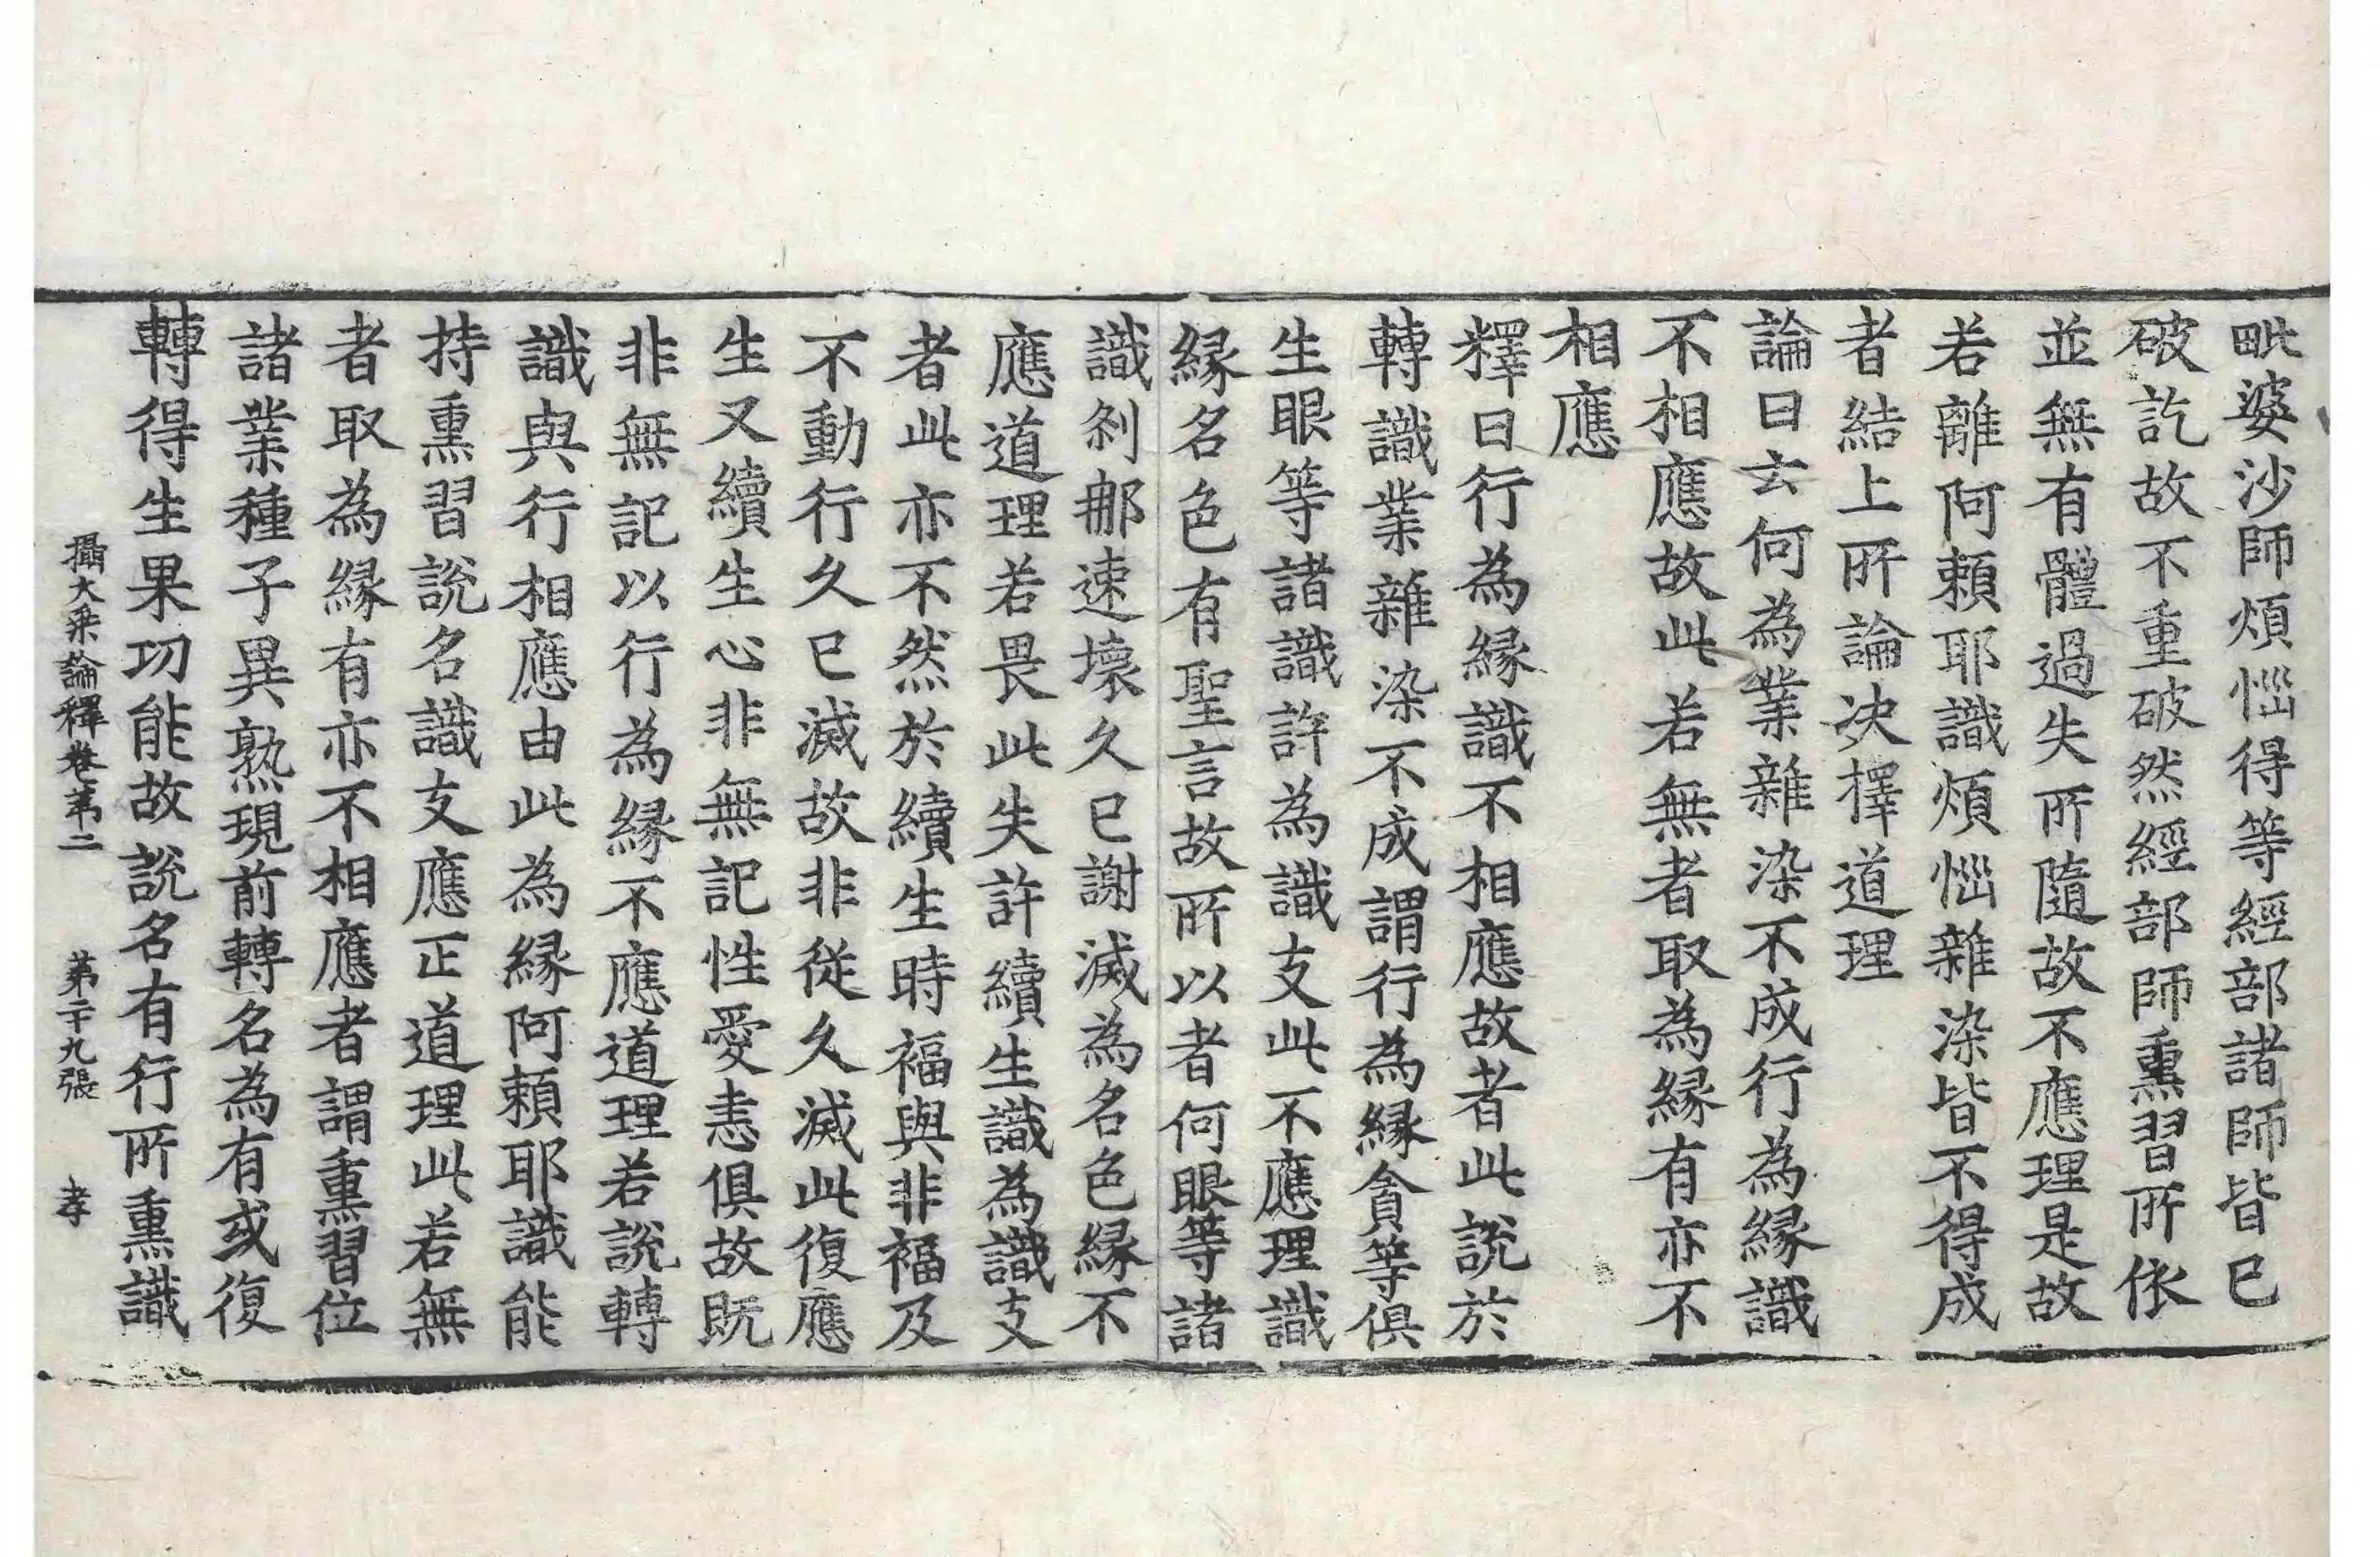 毗婆沙師煩惱得等經部諸師皆已
破訖故不重破然經部師熏習所依
並無有體過失所隨故不應理是故
若離阿賴耶識煩惱雜染皆不得成
者結上所論决擇道理
論曰云何為業雜染不成行為緣識
不相應故此若無者取為緣有亦不
相應
釋曰行為緣識不相應故者此說於
轉識業雜染不成謂行為緣貪等俱
生眼等諸識許為識支此不應理識
緣名色有聖言故所以者何眼等諸
識剎那速壞久已謝滅為名色緣不
應道理若畏此失許續生識為識支
者此亦不然於續生時福與非福及
不動行久已滅故非從久滅此復應
生又續生心非無記性愛恚俱故既
非無記以行為緣不應道理若說轉
識與行相應由此為緣阿賴耶識能
持熏習說名識支應正道理此若無
者取為緣有亦不相應者謂熏習位
諸業種子異熟現前轉名為有或復
轉得生果功能故說名有行所熏識
攝大乘論釋卷第二　第二十九張　孝